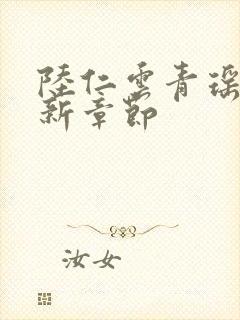 陸仁雲青瑶
新章節
汝女